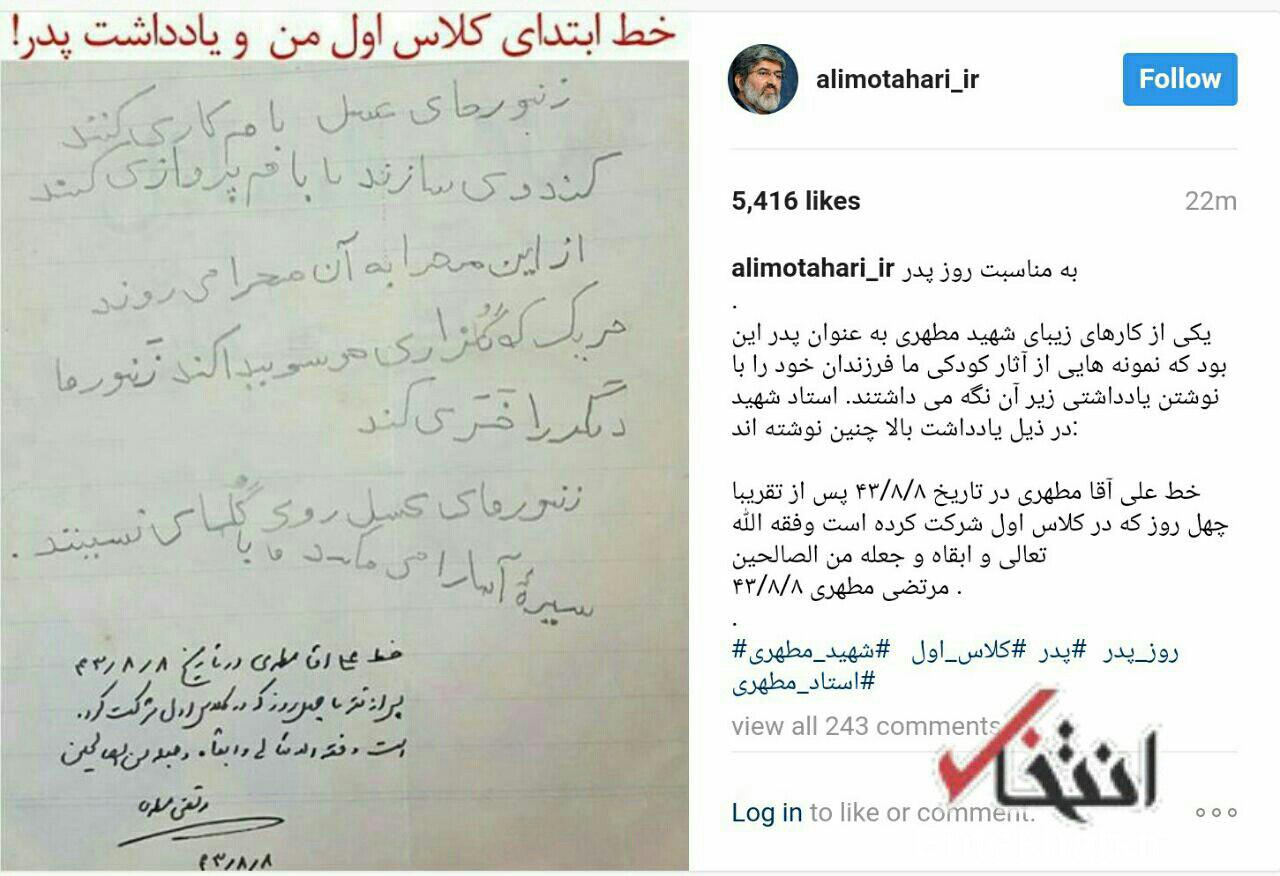 خط ابتدای کلاس اول من و یادداشت پدر!
زنبورهای عسل با هم کار می کنند
کندو می سازند با با هم پرواز می کنند
از این صحرا به آن صحرا می روند
هر یک که گُلزاری
پیدا کند زَنبورها
دیگر را خَبَر می کند
زنبورهای عسل روی گُلها می نشینند .
شیرهٔ آنها را می مکند و با
خط علی آقا مطهری در تاریخ ۴۳/۸/۸
پس از تقریبا چهل روز که در کلاس اول شرکت کرده
است وفقه الله تعالی و ابقاه و جعله من الصالحین
مرتضی مطهری
۴۳/۸/۸
alimotahari_ir
Follow
5,416 likes
22m
alimotahari_ir به مناسبت روز پدر
.
یکی از کارهای زیبای شهید مطهری به عنوان پدر این
بود که نمونه هایی از آثار کودکی ما فرزندان خود را با
نوشتن یادداشتی زیر آن نگه می داشتند. استاد شهید
در ذیل یادداشت بالا چنین نوشته اند:
خط علی آقا مطهری در تاریخ ۴۳/۸/۸ پس از تقریبا
چهل روز که در کلاس اول شرکت کرده است وفقه الله
تعالی و ابقاه و جعله من الصالحین
مرتضی مطهری ۴۳/۸/۸ .
.
#روز_پدر #پدر #کلاس_اول #شهید_مطهری
#استاد_مطهری
view all 243 comments
Log in to like or comment.
انتخاب